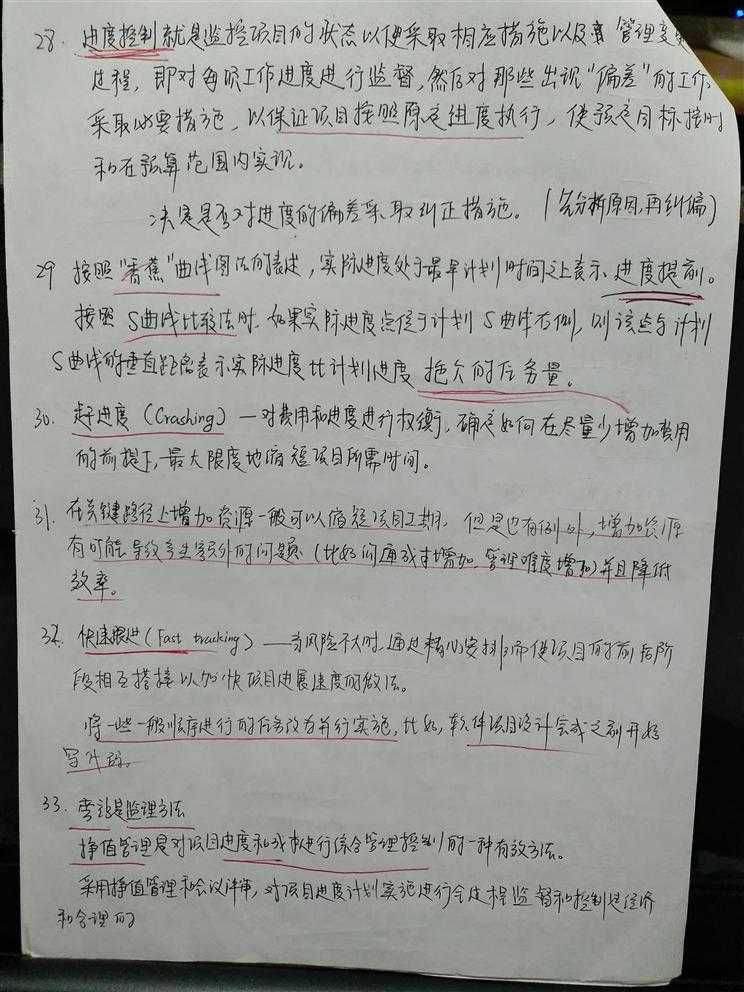 28. 进度控制就是监控项目的状态以便采取相应措施以及 管理变更
过程，即对每项工作进度进行监督，然后对那些出现“偏差”的工作
采取必要措施，以保证项目按照原定进度执行，使预定目标按时
和在预算范围内实现。
决定是否对进度的偏差采取纠正措施。（先分析原因，再纠偏）
29 按照“香蕉”曲线图法的表述，实际进度处于最早计划时间之上表示进度提前。
按照 S曲线比较法时，如果实际进度点位于计划S曲线右侧，则该点与计划
S曲线的垂直距离表示实际进度比计划进度拖欠的任务量。
30. 赶进度（Crashing）—对费用和进度进行权衡，确定如何在尽量少增加费用
的前提下，最大限度地缩短项目所需时间。
31. 在关键路径上增加资源一般可以缩短项目工期，但是也有例外，增加资源
有可能导致产生额外的问题（比如沟通成本增加、管理难度增加）并且降低
效率。
32. 快速跟进（Fast tracking）——当风险不大时，通过精心安排而使项目的前后阶
段相互搭接以加快项目进展速度的做法。
将一些一般顺序进行的任务改为并行实施，比如，软件项目设计完成之前开始
写代码。
33. 旁站是监理方法
挣值管理是对项目进度和成本进行综合管理控制的一种有效方法。
采用挣值管理和会议评审，对项目进度计划实施进行全过程监督和控制是经济
和合理的